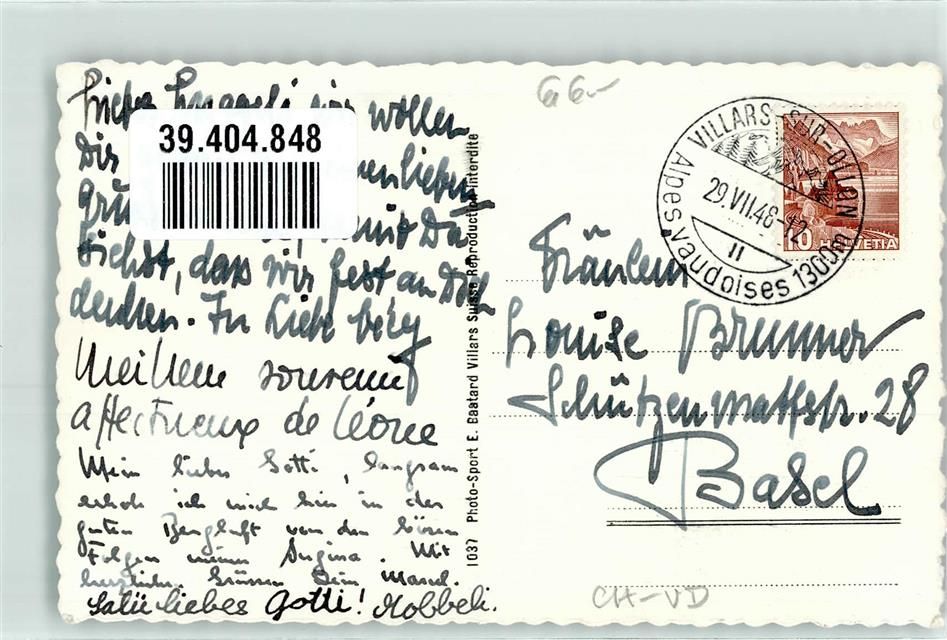 Liebes wir wollen
Dir
39.404.848
Dich, dass wir fest an Dich
denken. In Liebe
Meilleur souvenir
affectueux de Léonie
Mein liebes Gotti, langsam
erhole ich mich hier in der
guten Bergluft von den bösen
Folgen meiner Angina. Mit
herzlichen Grüssen Dein Marcel.
Salü liebes Gotti! Nobbeli.
1037 Photo-Sport E. Baatard Villars Suisse Reproduction interdite
VILLARS-SUR-OLLON
29.VII.48-12
II
Alpes vaudoises 1300m
10 HELVETIA
Fräulein
Louise Brunner
Schützenmattstr. 28
Basel
CH-VD